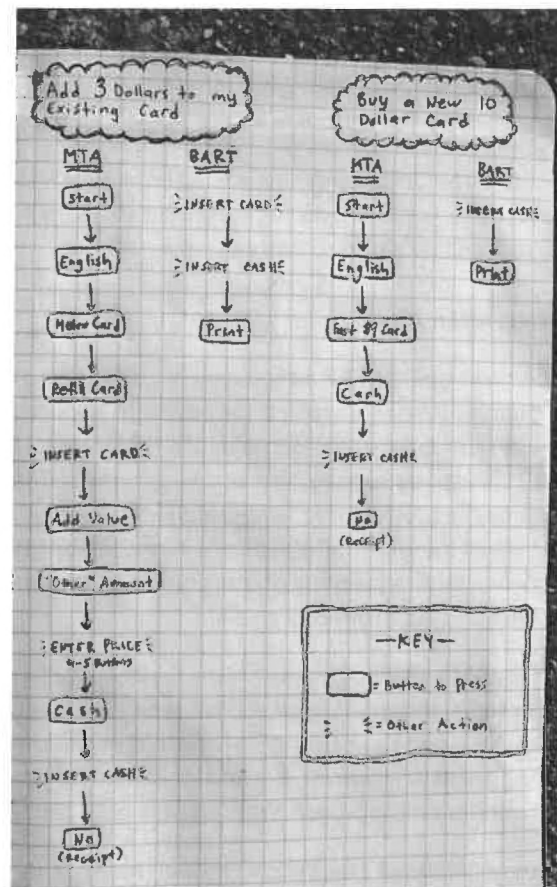 Add 3 Dollars to my
Existing Card
MTA
Start
English
Metro Card
Refill Card
INSERT CARD
Add Value
"Other" Amount
ENTER PRICE
4-5 Buttons
Cash
INSERT CASH
No
(Receipt)
BART
INSERT CARD
INSERT CASH
Print
Buy a New 10
Dollar Card
MTA
Start
English
Fast $9 Card
Cash
INSERT CASH
No
(Receipt)
BART
INSERT CASH
Print
—KEY—
= Button to Press
= Other Action